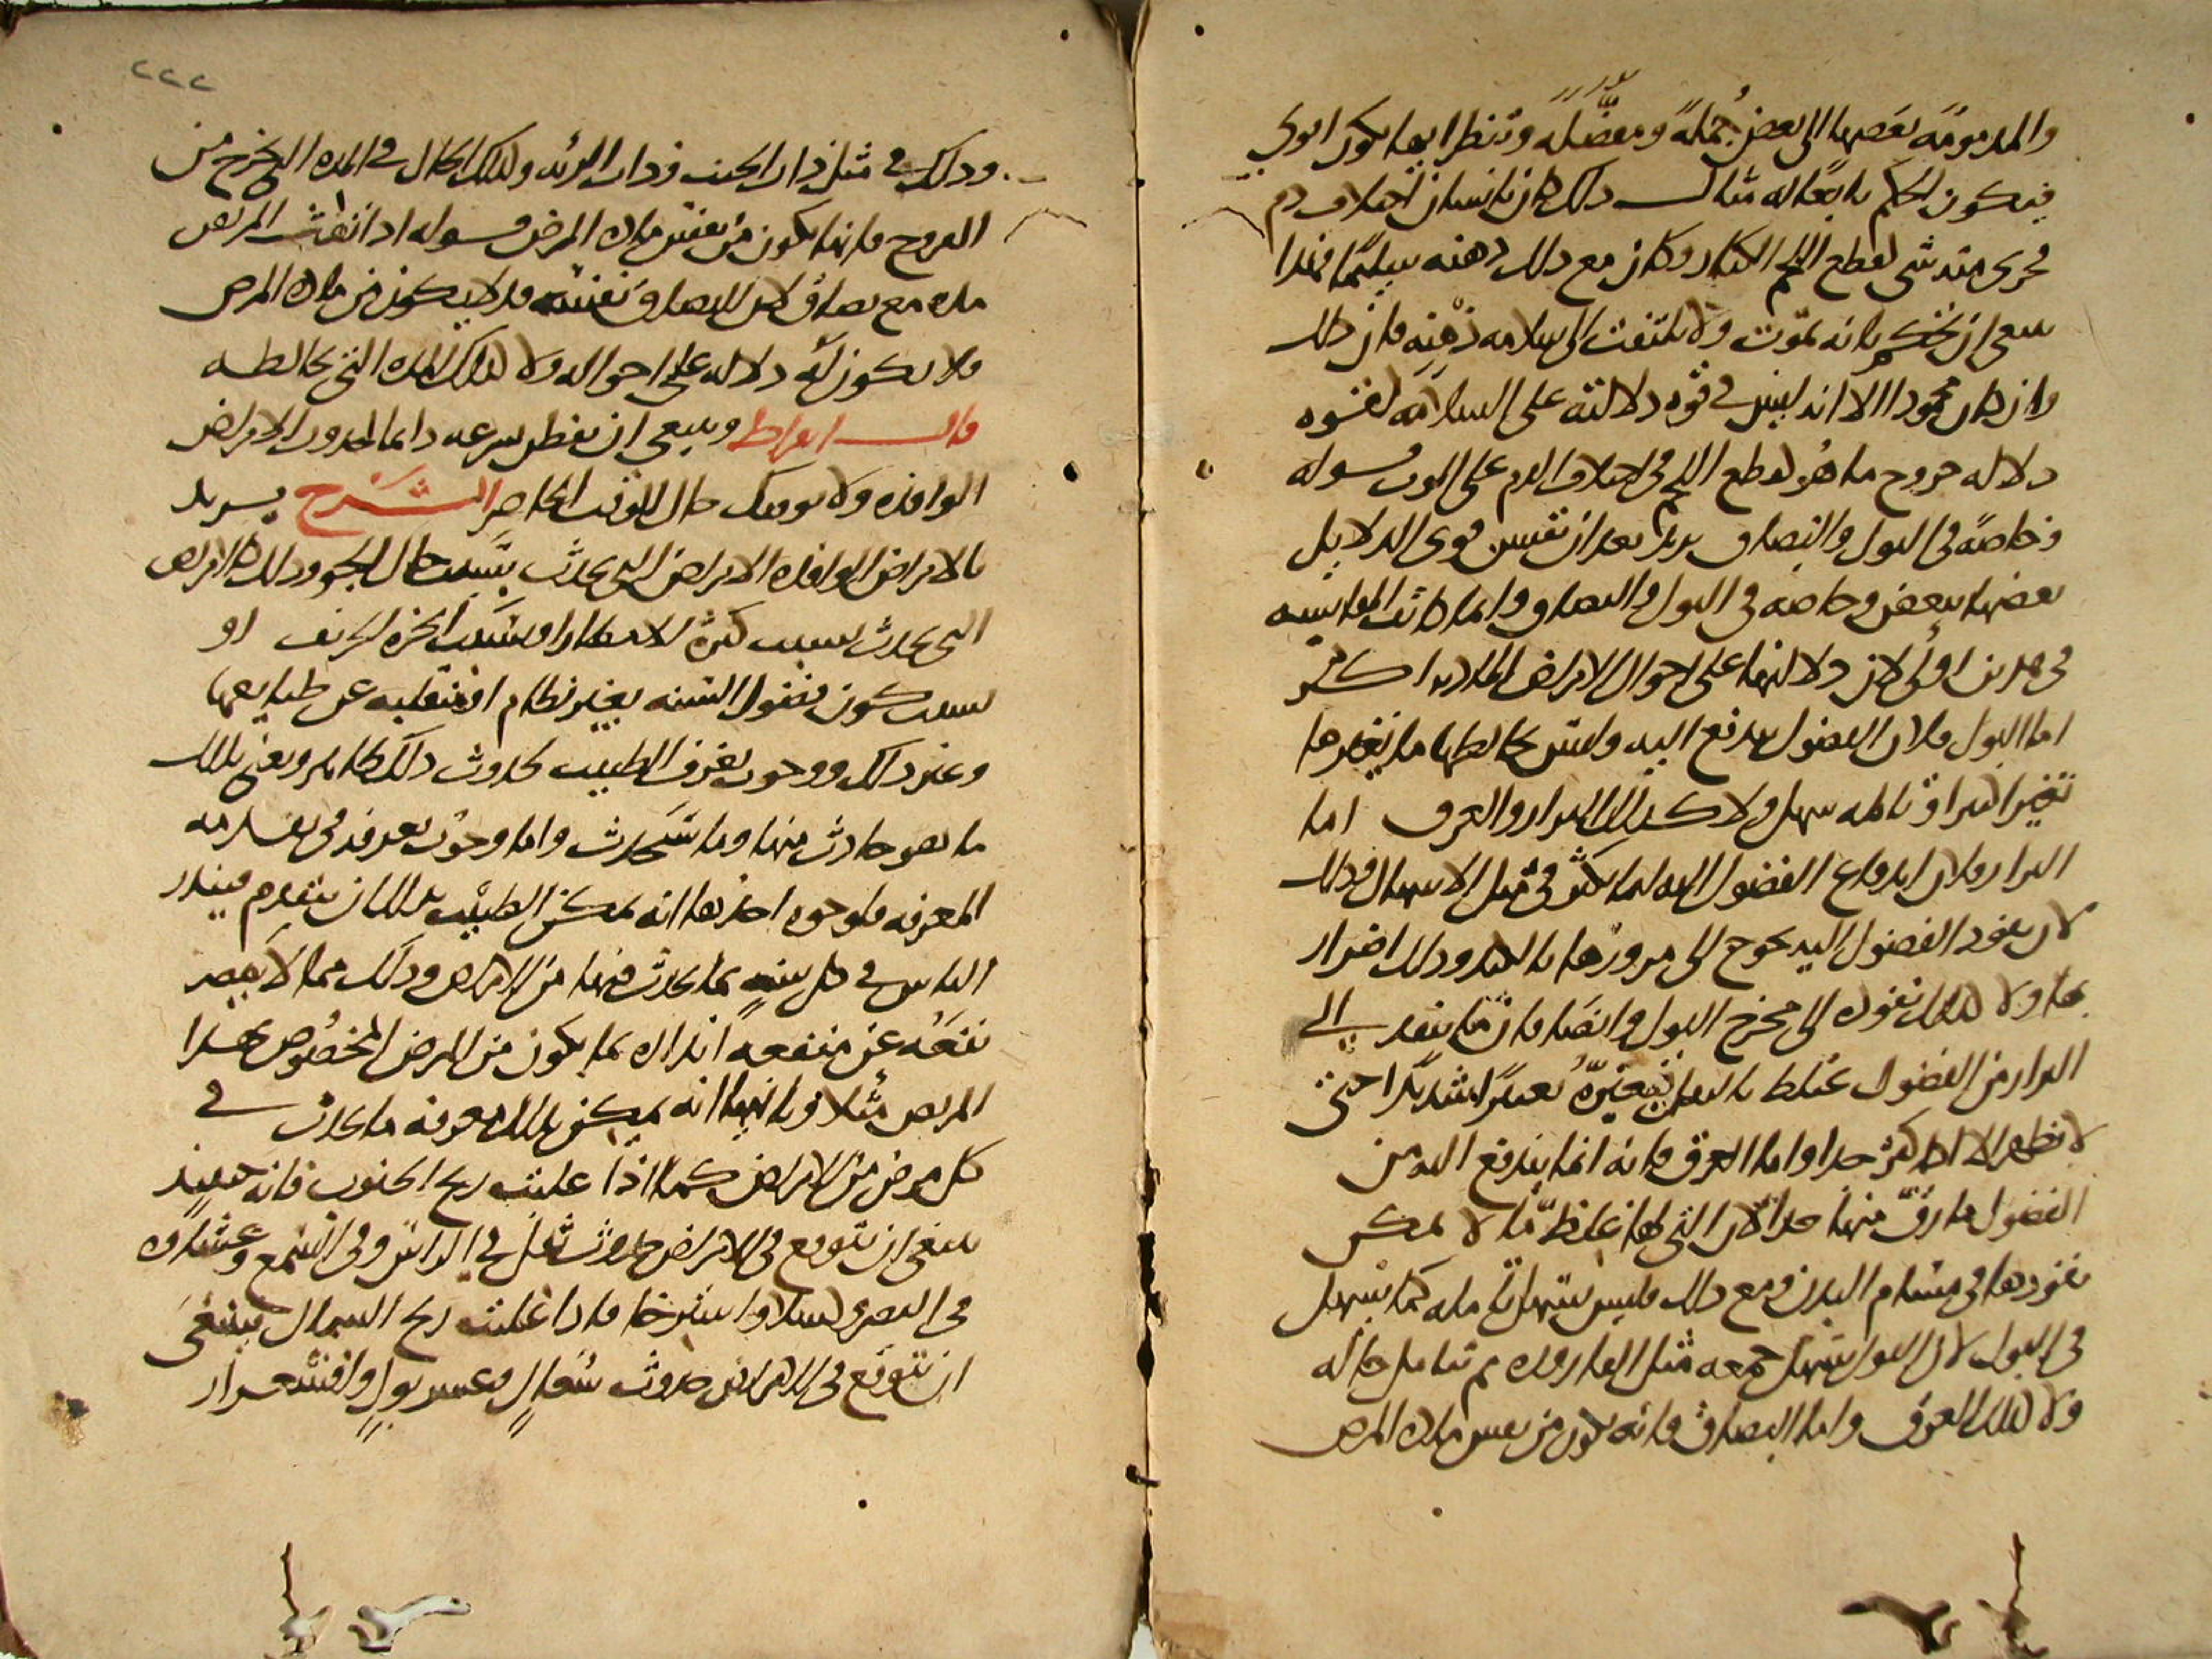 والمذمومة بعضها الى بعض جملة ومفصلة وتنظر ايها يكون اقوى
فيكون الحكم تابعا له مثال ذلك كان بانسان اختلاف دم
فخرى منه شى كقطع اللحم الكبار وكان مع ذلك ذهنه سليما فهذا
ينبغى ان نحكم بانه يموت ولا يلتفت الى سلامة ذهنه فان ذلك
وان كان محمودا الا انه ليس فى قوة دلالته على السلامة لقوة
دلالة خروج ما هو كقطع اللحم فى اختلاف الدم على الموت قوله
وخاصة فى البول والبصاق يريد بعد ان تقيس قوى الدلايل
بعضها ببعض وخاصة فى البول والبصاق وانما كانت المقايسة
فى هذين اولى لان دلالتها على احوال الامراض المادية اكثر
اما البول فلان الفضول يندفع اليه وليس يخالطها ما يغيرها
تغييرا كثيرا وتامله سهل ولا كذلك البراز والعرق اما
البراز فلان اندفاع الفضول اليه انما يكثر فى مثل الاسهال وذلك
لان نفوذ الفضول اليه يحوج الى مرورها بالكبد وذلك اضرار
بها ولا كذلك نفوذه الى مخرج البول وايضا فان ما ينفذ الى
البراز من الفضول يختلط بالثفل فيغيره تغييرا شديدا حتى
لا يظهر الا اذا كثر جدا واما العرق فانه انما يندفع اليه من
الفضول ما رق منها جدا لان التى لها غلظ ما لا يمكن
نفوذها فى مسام البدن ومع ذلك فليس يسهل تامله كما يسهل
فى البول لان البول يسهل جمعه فى مثل القارورة ثم تامل حاله
ولا كذلك العرق واما البصاق فانه يكون من نفس مادة المرض
٢٢٢
وذلك فى مثل ذات الجنب وذات الرئة وكذلك الحال فى المدة التى تخرج من
القروح فانها تكون من نفس مادة المرض قوله اذا نفث المريض
مدة مع بصاق لان البصاق نفسه قد لا يكون من مادة المرض
فلا يكون له دلالة على احواله ولا كذلك المدة التى تخالطه
قال ابقراط وينبغى ان نفطن بسرعة دائما لحدوث الامراض
الوافدة ولا يفوتك حال الوقت الحاضر الشرح يريد
بالامراض الوافدة الامراض التى تحدث بسبب حال الجو وذلك كالامراض
التى تحدث بسبب كثرة الامطار او بسبب الخرة الخريف او
بسبب كون فصول السنة بغير نظام او منقلبة عن طبايعها
وغير ذلك ووجوب تعرف الطبيب لحدوث ذلك ظاهر ونعنى بذلك
ما هو حادث منها وما سيحدث واما وجوب تعرفه فى تقدمة
المعرفة فلوجوه احدها انه يمكن الطبيب بذلك ان يتقدم فينذر
الناس فى كل سنة بما يحدث فيها من الامراض وذلك مما لا يقصر
نفعه عن منفعة انذاره بما يكون من المرض المخصوص بهذا
المريض مثلا وثانيها انه يمكن بذلك معرفة ما يحدث فى
كل مرض من الامراض كما اذا غلبت ريح الجنوب فانه حينئذ
ينبغى ان تتوقع فى الامراض حدوث ثقل فى الراس وفى السمع وغشاوة
فى البصر وكسلا واسترخا فاذا غلبت ريح الشمال فينبغى
ان تتوقع فى الامراض حدوث سعال وعسر بول واقشعرار